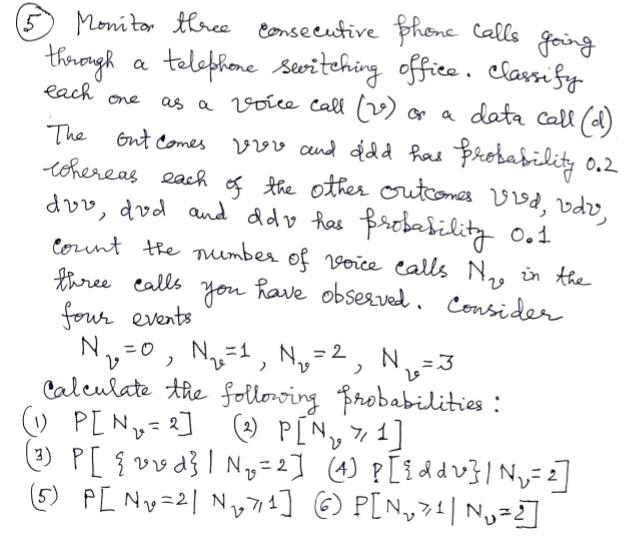 (5) Monitor three consecutive phone calls going
through a telephone switching office. Classify
each one as a voice call (v) or a data call (d)
The outcomes vvv and ddd has probability 0.2
whereas each of the other outcomes vvd, vdv,
dvv, dvd and ddv has probability 0.1
Count the number of voice calls Nᵥ in the
three calls you have observed. Consider
four events
Nᵥ=0, Nᵥ=1, Nᵥ=2, Nᵥ=3
Calculate the following probabilities:
(1) P[Nᵥ=2] (2) P[Nᵥ⩾1]
(3) P[{vvd}|Nᵥ=2] (4) P[{ddv}|Nᵥ=2]
(5) P[Nᵥ=2|Nᵥ⩾1] (6) P[Nᵥ⩾1|Nᵥ=2]